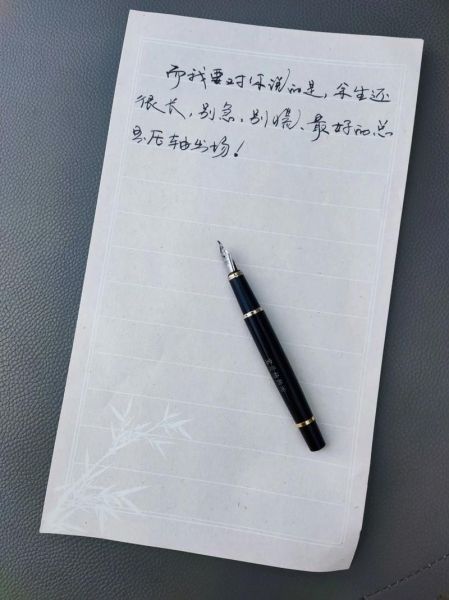 而我要对你说的是，余生还
很长，别急，别慌、最好的总
是压轴出场！